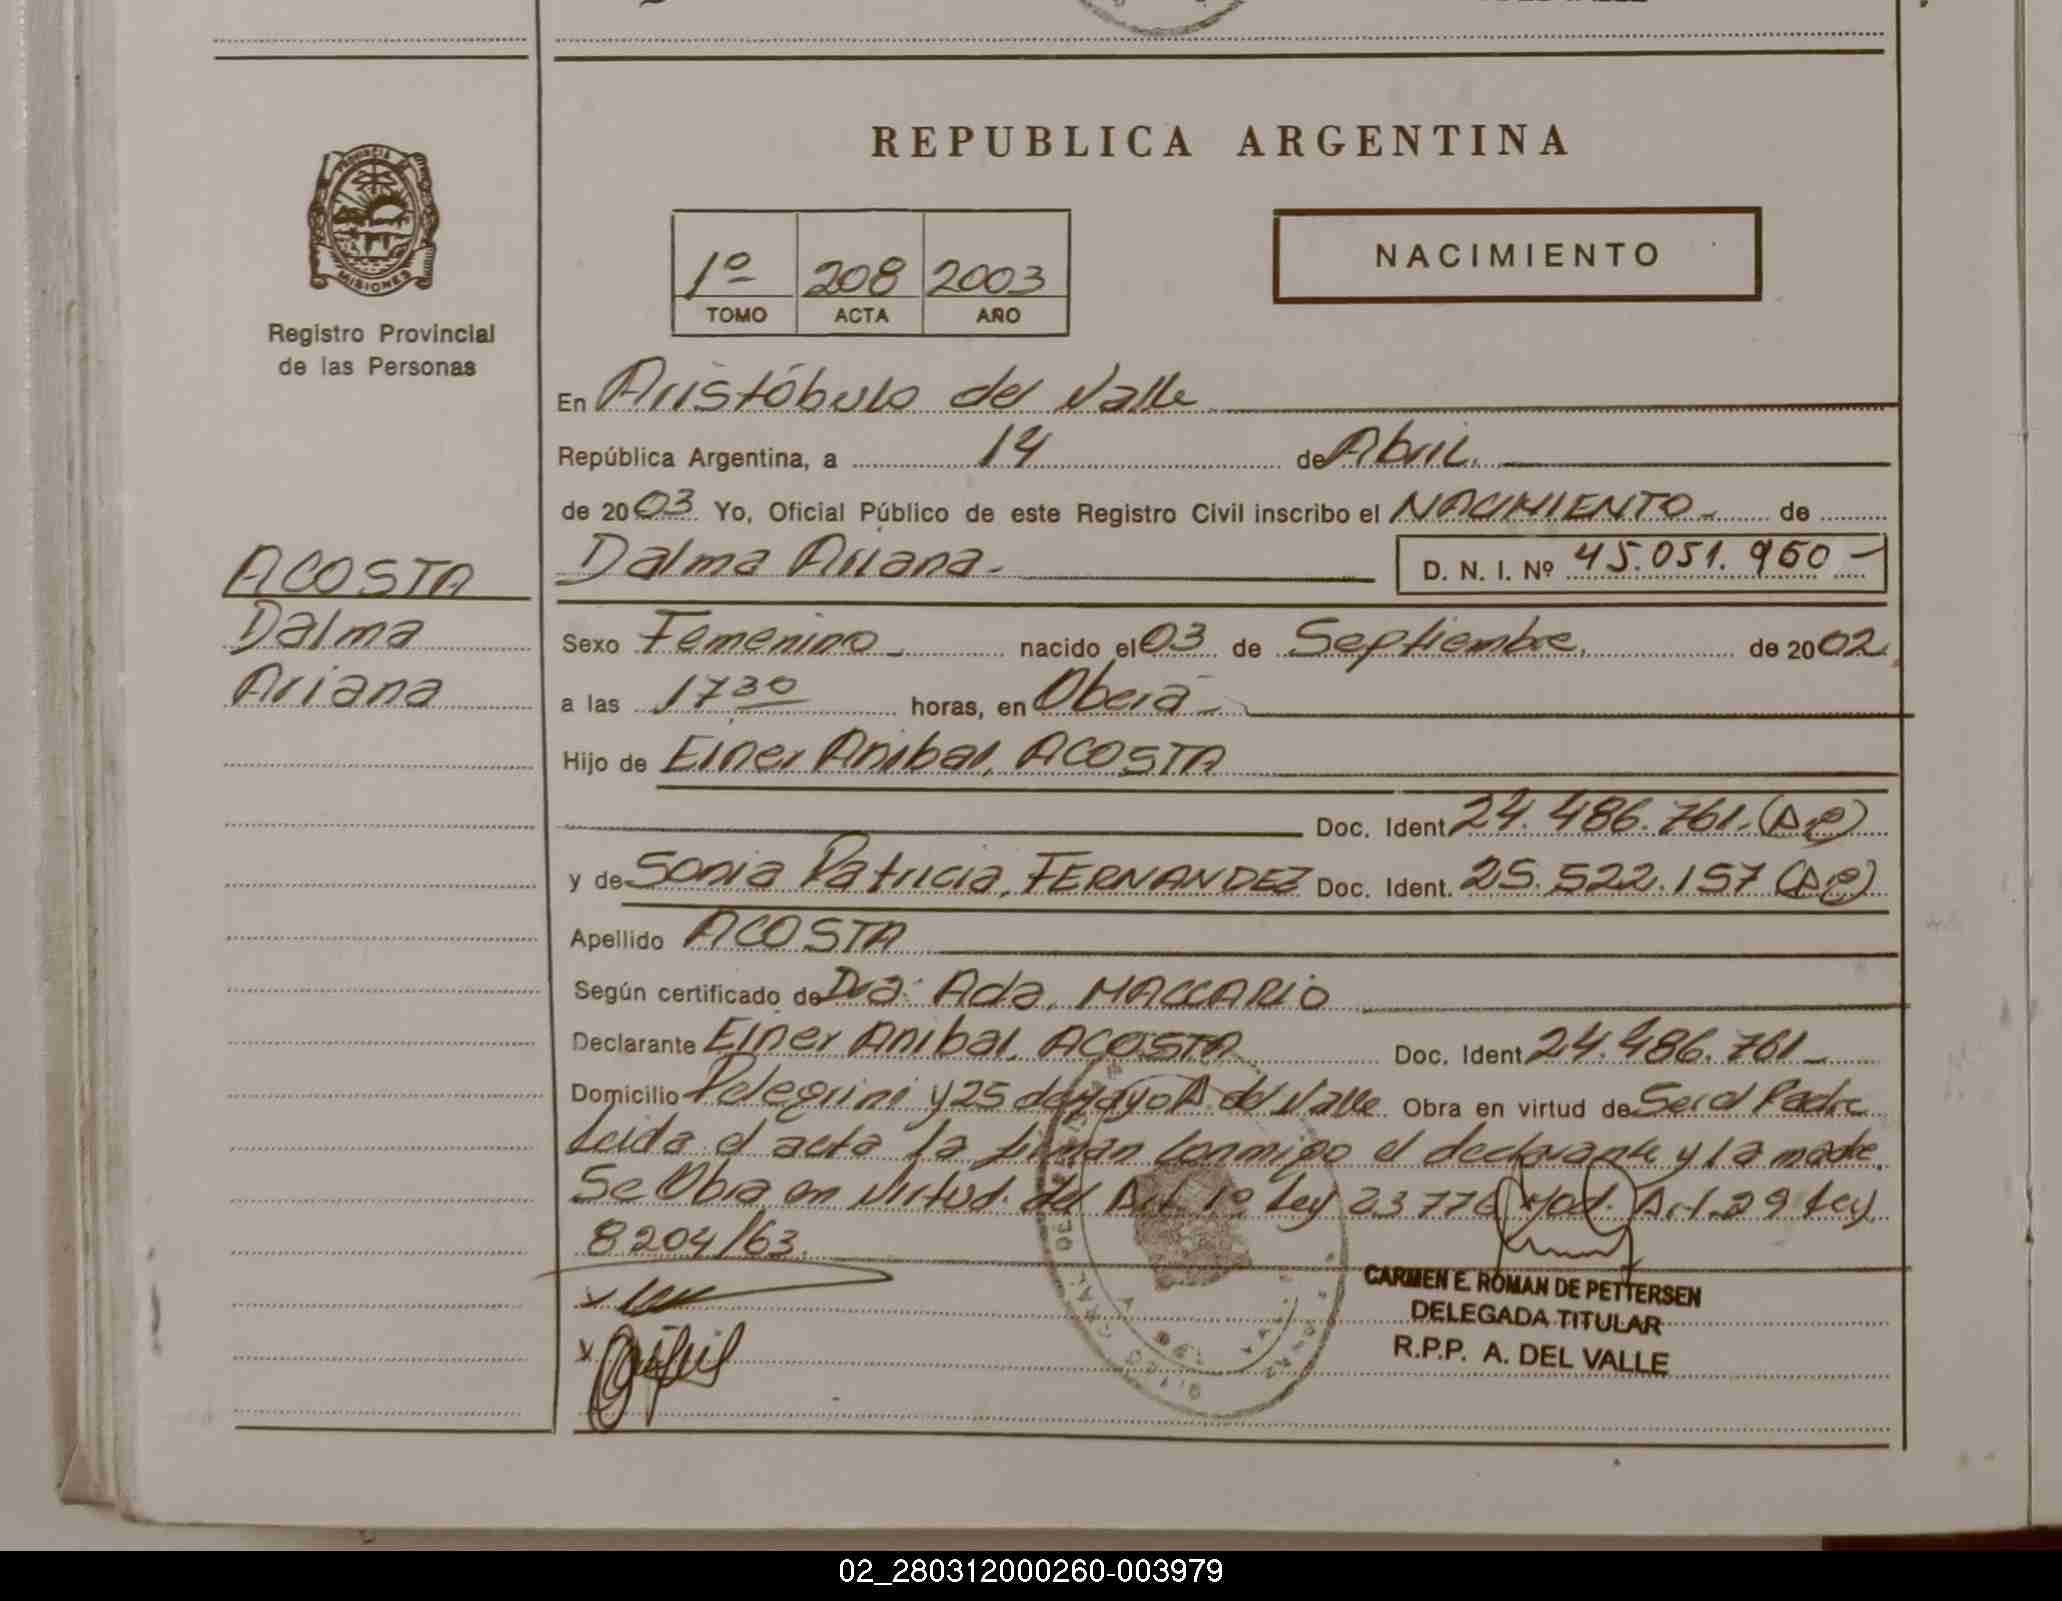 REPUBLICA ARGENTINA
PROVINCIA
MISIONES
Registro Provincial
de las Personas
1º 208 2003
TOMO ACTA AÑO
NACIMIENTO
En Aristóbulo del Valle
República Argentina, a 14 de Abril.
de 2003 Yo, Oficial Público de este Registro Civil inscribo el NACIMIENTO de
ACOSTA
Dalma
Ariana
Dalma Ariana.- D. N. I. Nº 45.051.960-
Sexo Femenino nacido el 03 de Septiembre. de 2002
a las 17 30 horas, en Oberá
Hijo de Einer Anibal, ACOSTA
Doc. Ident 24.486.761.
y de Sonia Patricia, FERNANDEZ Doc. Ident. 25.522.157
Apellido ACOSTA
Según certificado de Dra: Ada, MACCARIO
Declarante Einer Anibal, ACOSTA Doc. Ident 24.486.761
Domicilio Pelegrini y 25 de Mayo A. del Valle. Obra en virtud de Ser el Padre
Leida el acta la firman conmigo el declarante y la madre.
Se Obra en virtud del Art. 1º Ley 23776 Mod. Art. 29 Ley
8204/63.
CARMEN E. ROMAN DE PETTERSEN
DELEGADA TITULAR
R.P.P. A. DEL VALLE
02_280312000260-003979